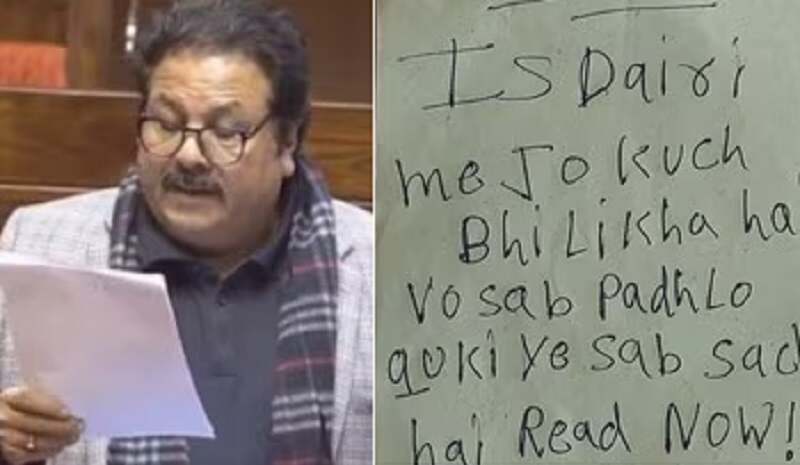 Is Dairi
me Jo kuch
Bhi Likha ha
Vo sab Padh Lo
quki ye sab sach
hai Read NOW!